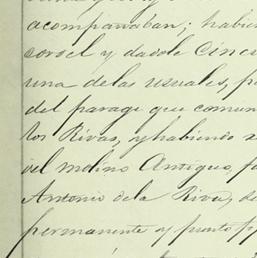 acompañaban; habien
corocl y dadole Cincu
una delas usuales, p
del parage que comun
los Rivas, y habiendo
del molino Antiguo, p
Antonio dela Riva, de
permanente y punto f